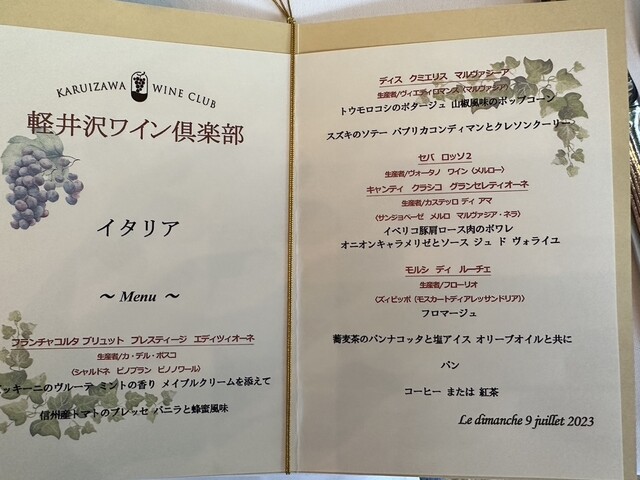 KARUIZAWA WINE CLUB
軽井沢ワイン倶楽部
イタリア
～ Menu ～
フランチャコルタ ブリュット プレスティージ エディツィオーネ
生産者/カ・デル・ボスコ
〈シャルドネ ピノブラン ピノノワール〉
ッキーニのヴルーテ ミントの香り メイプルクリームを添えて
信州産トマトのブレッセ バニラと蜂蜜風味
ディス クミエリス マルヴァジーア
生産者/ヴィエディロマンス〈マルヴァジア〉
トウモロコシのポタージュ 山椒風味のポップコーン
スズキのソテー パプリカコンディマンとクレソンクーリー
セパ ロッソ2
生産者/ヴォータノ ワイン〈メルロー〉
キャンティ クラシコ グランセレティオーネ
生産者/カステッロ ディ アマ
〈サンジョベーゼ メルロ マルヴァジア・ネラ〉
イベリコ豚肩ロース肉のポワレ
オニオンキャラメリゼとソース ジュ ド ヴォライユ
モルシ ディ ルーチェ
生産者/フローリオ
〈ズィビッボ（モスカートディアレッサンドリア）〉
フロマージュ
蕎麦茶のパンナコッタと塩アイス オリーブオイルと共に
パン
コーヒー または 紅茶
Le dimanche 9 juillet 2023